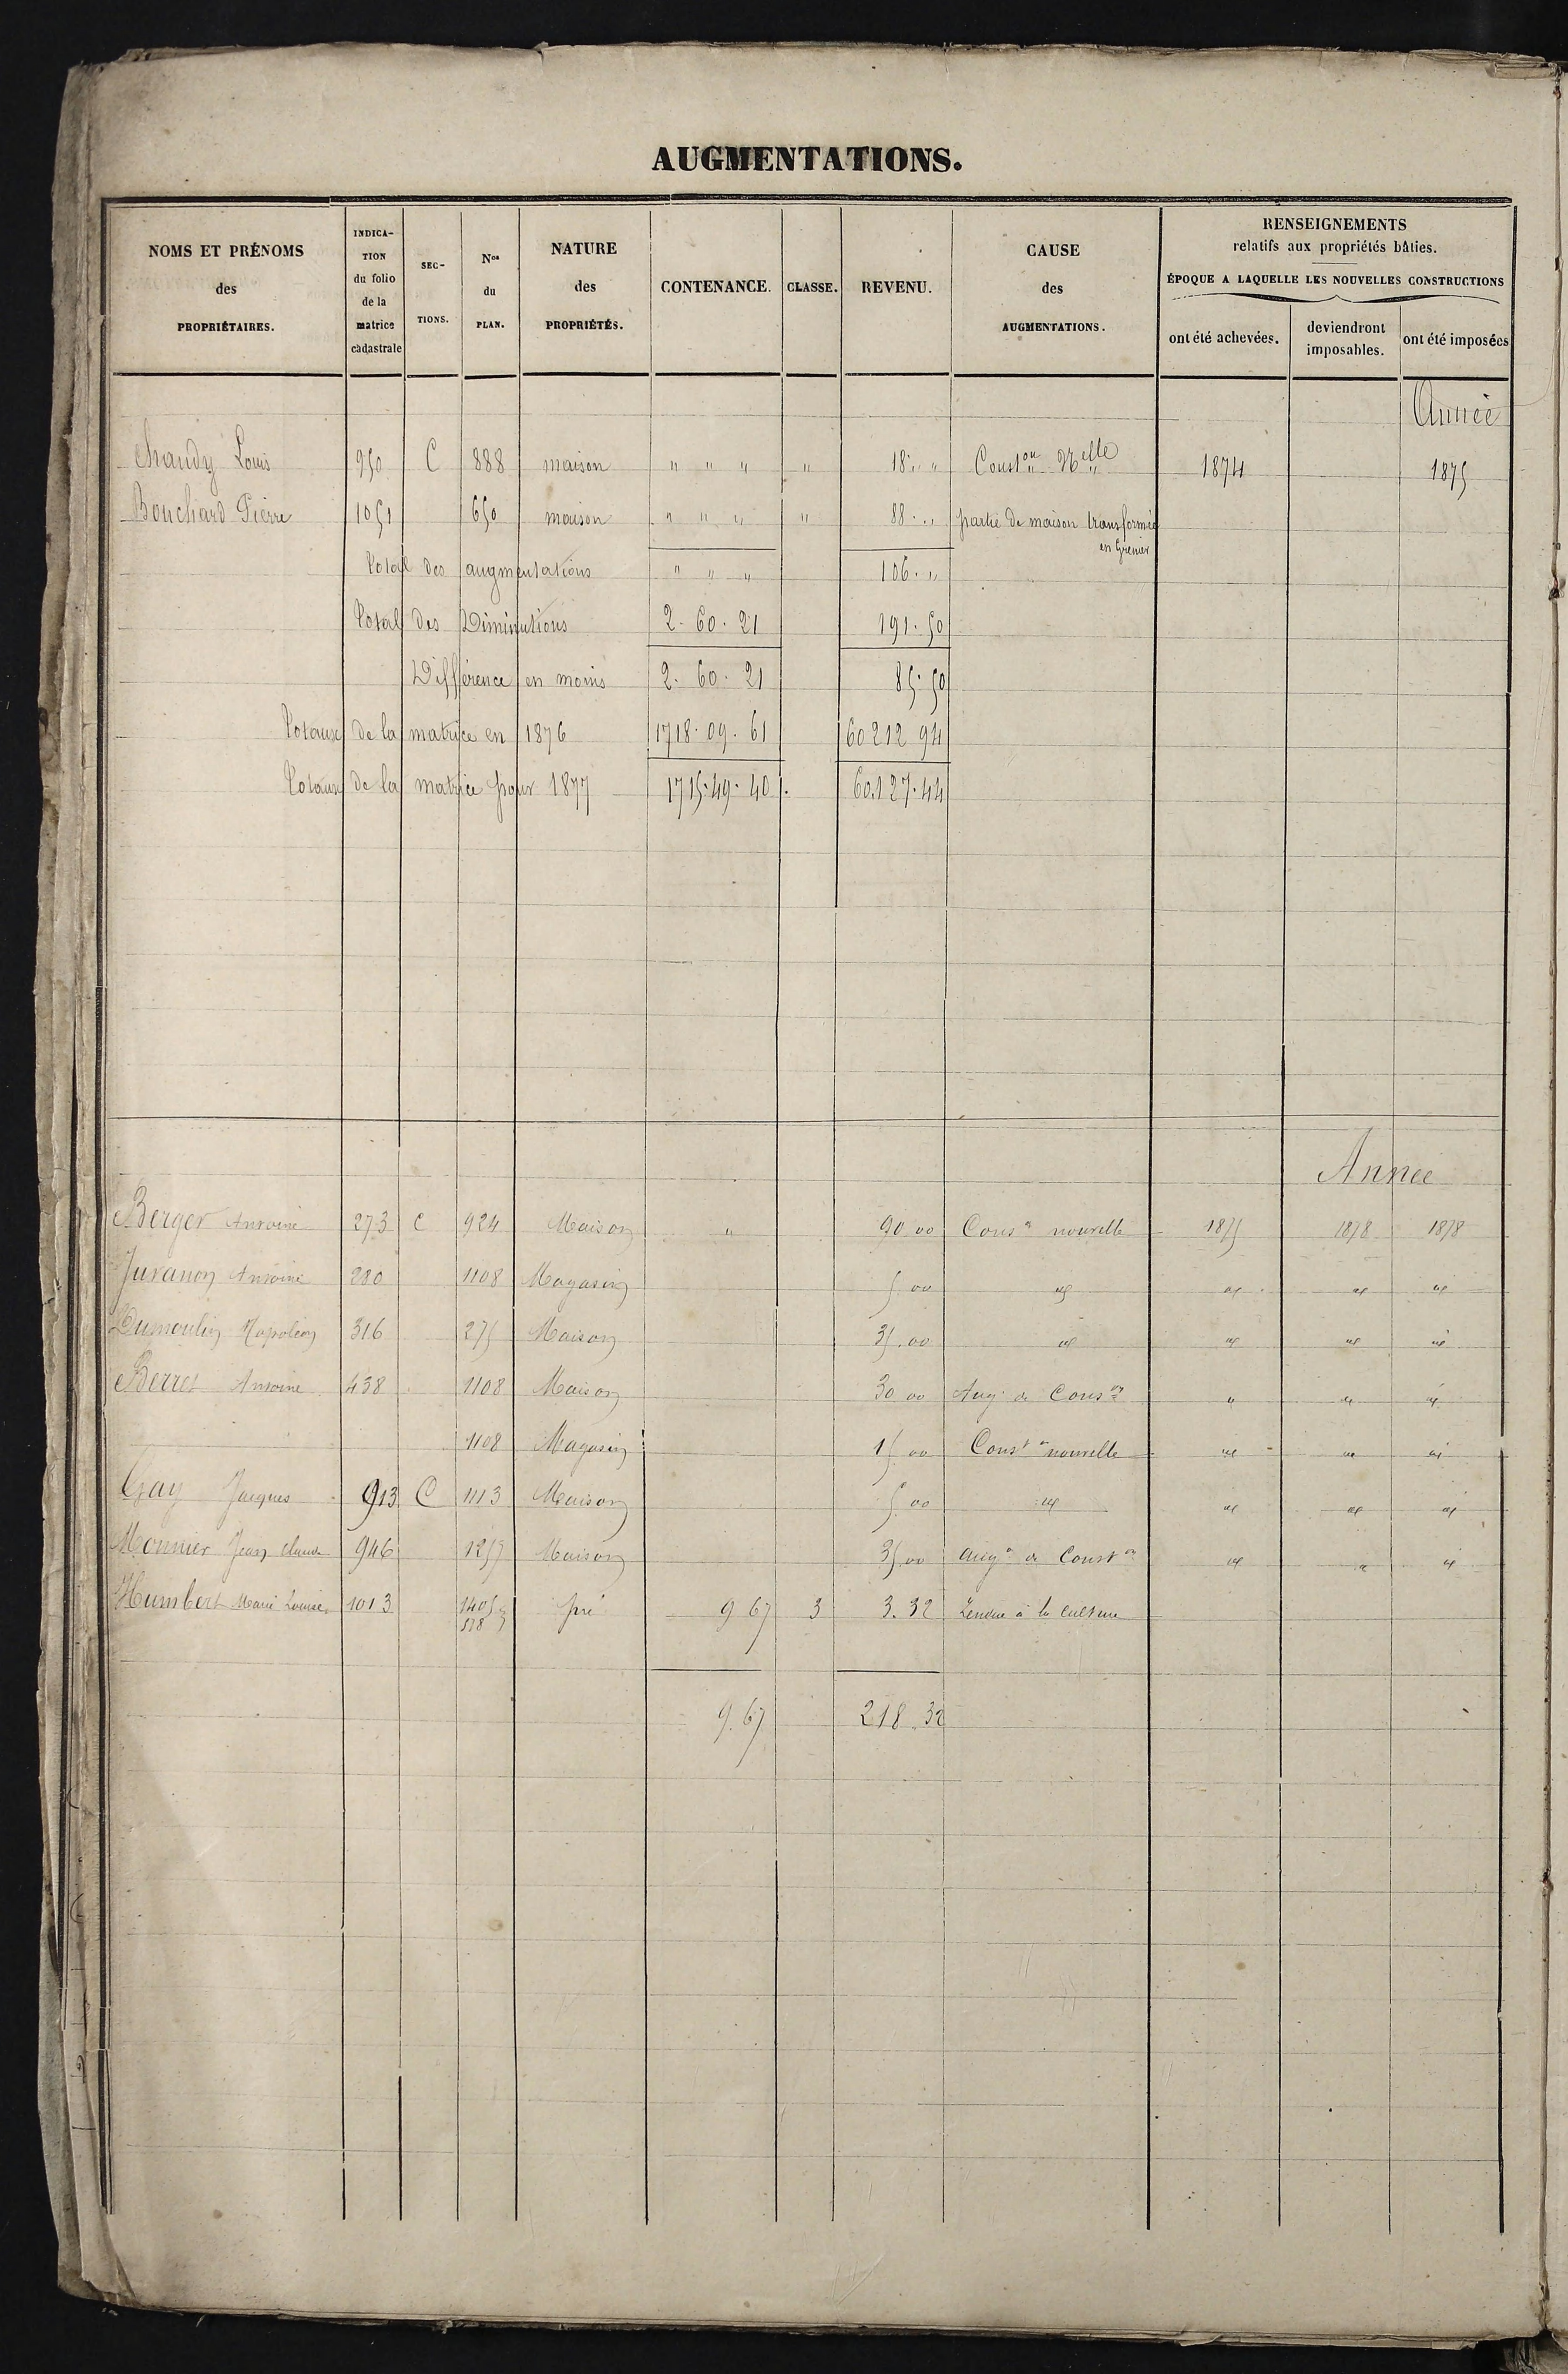 AUGMENTATIONS.
NOMS ET PRÉNOMS des PROPRIÉTAIRES. | INDICA-TION du folio de la matrice cadastrale | SEC-TIONS. | Nos du PLAN. | NATURE des PROPRIÉTÉS. | CONTENANCE. | CLASSE. | REVENU. | CAUSE des AUGMENTATIONS. | RENSEIGNEMENTS relatifs aux propriétés bâties.
ÉPOQUE A LAQUELLE LES NOUVELLES CONSTRUCTIONS
ont été achevées. | deviendront imposables. | ont été imposées
Année
Chaudy Louis 950 C 888 maison " " " " 18 " Conston Nelle 1874 1875
Bouchard Pierre 1051 650 maison " " " " 88 " partie de maison transformée
en Grenier
Total des augmentations " " " 106 "
Total des Diminutions 2. 60. 21 191. 50
Différence en moins 2. 60. 21 85. 50
Totaux de la matrice en 1876 1718. 09. 61 60212 94
Totaux de la matrice pour 1877 1715. 49. 40. 60.127. 44
Année
Berger Antoine 273 C 924 Maison " 90 00 Consn nouvelle 1875 1878 1878
Juvanon Antoine 280 1108 Magasin 5. 00 id id id id
Dumoulin Napoléon 316 275 Maison 35. 00 id id id id
Berret Antoine 438 1108 Maison 30 00 Aug. de Conson " id id
1108 Magasin 15 00 Constn nouvelle id id id
Gay Jacques 913 C 1113 Maison 5. 00 id id id id
Monnier Jean Claude 946 1257 Maison 35. 00 augn de Conston id " id
Humbert Marie Louise 1013 1405 518 pré 9 67 3 3. 32 à la Culture
9. 67 218. 32